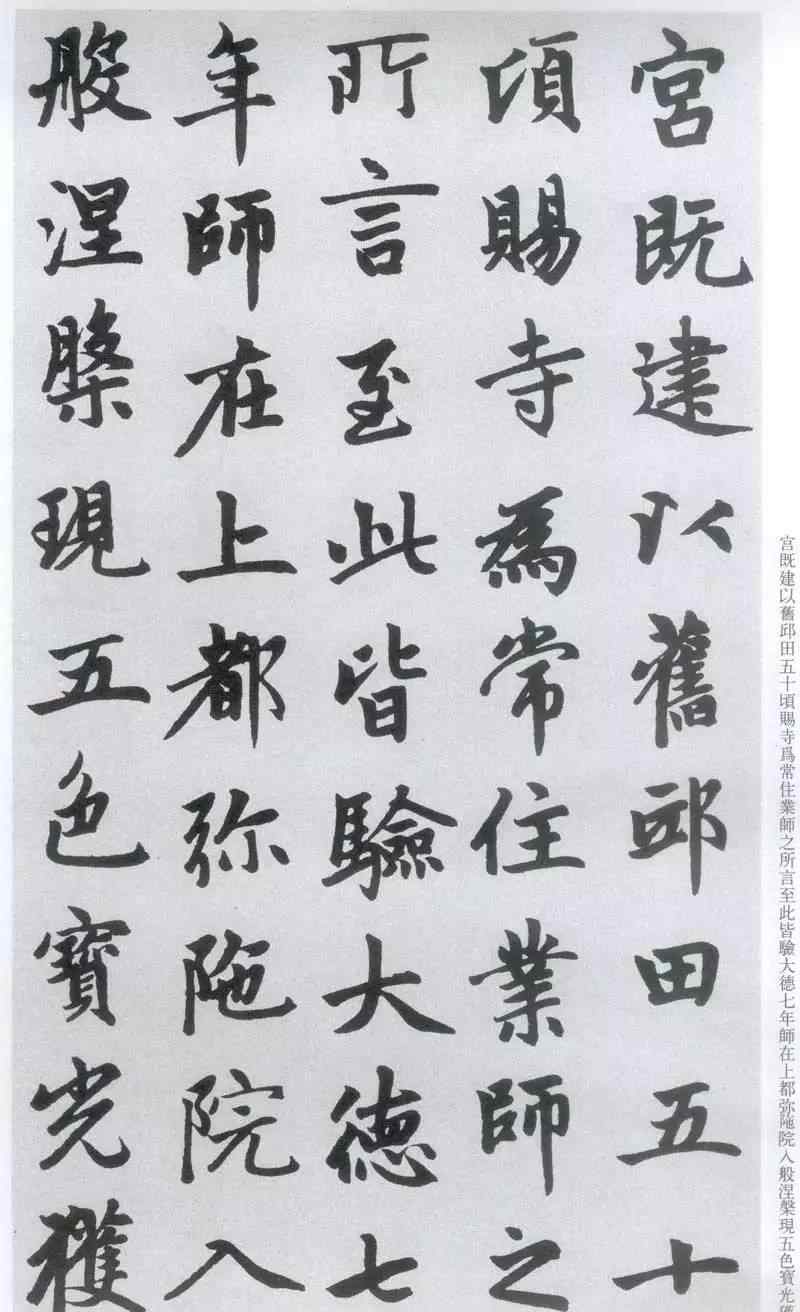 宮既建以舊邱田五十
頃賜寺為常住業師之
所言至此皆驗大德七
年師在上都弥陁院入
般涅槃現五色寶光獲
宫既建以舊邱田五十頃賜寺爲常住業師之所言至此皆驗大德七年師在上都弥陁院入般涅槃現五色寶光